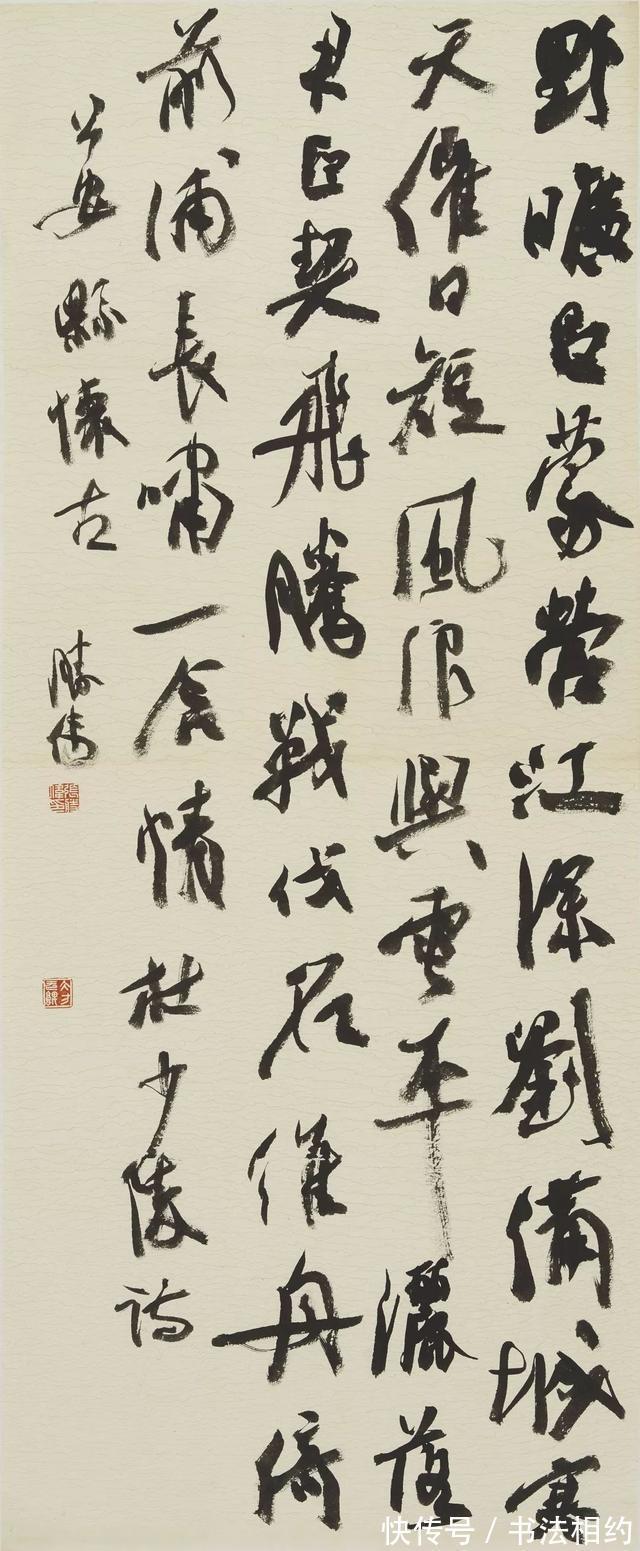 野曠呂蒙營江深劉備城寒
天催日短風浪與雲平灑落
君臣契飛騰戰伐名維舟倚
前浦長嘯一含情杜少陵詩
公安縣懷古 勝偉
快传号 / 书法相约